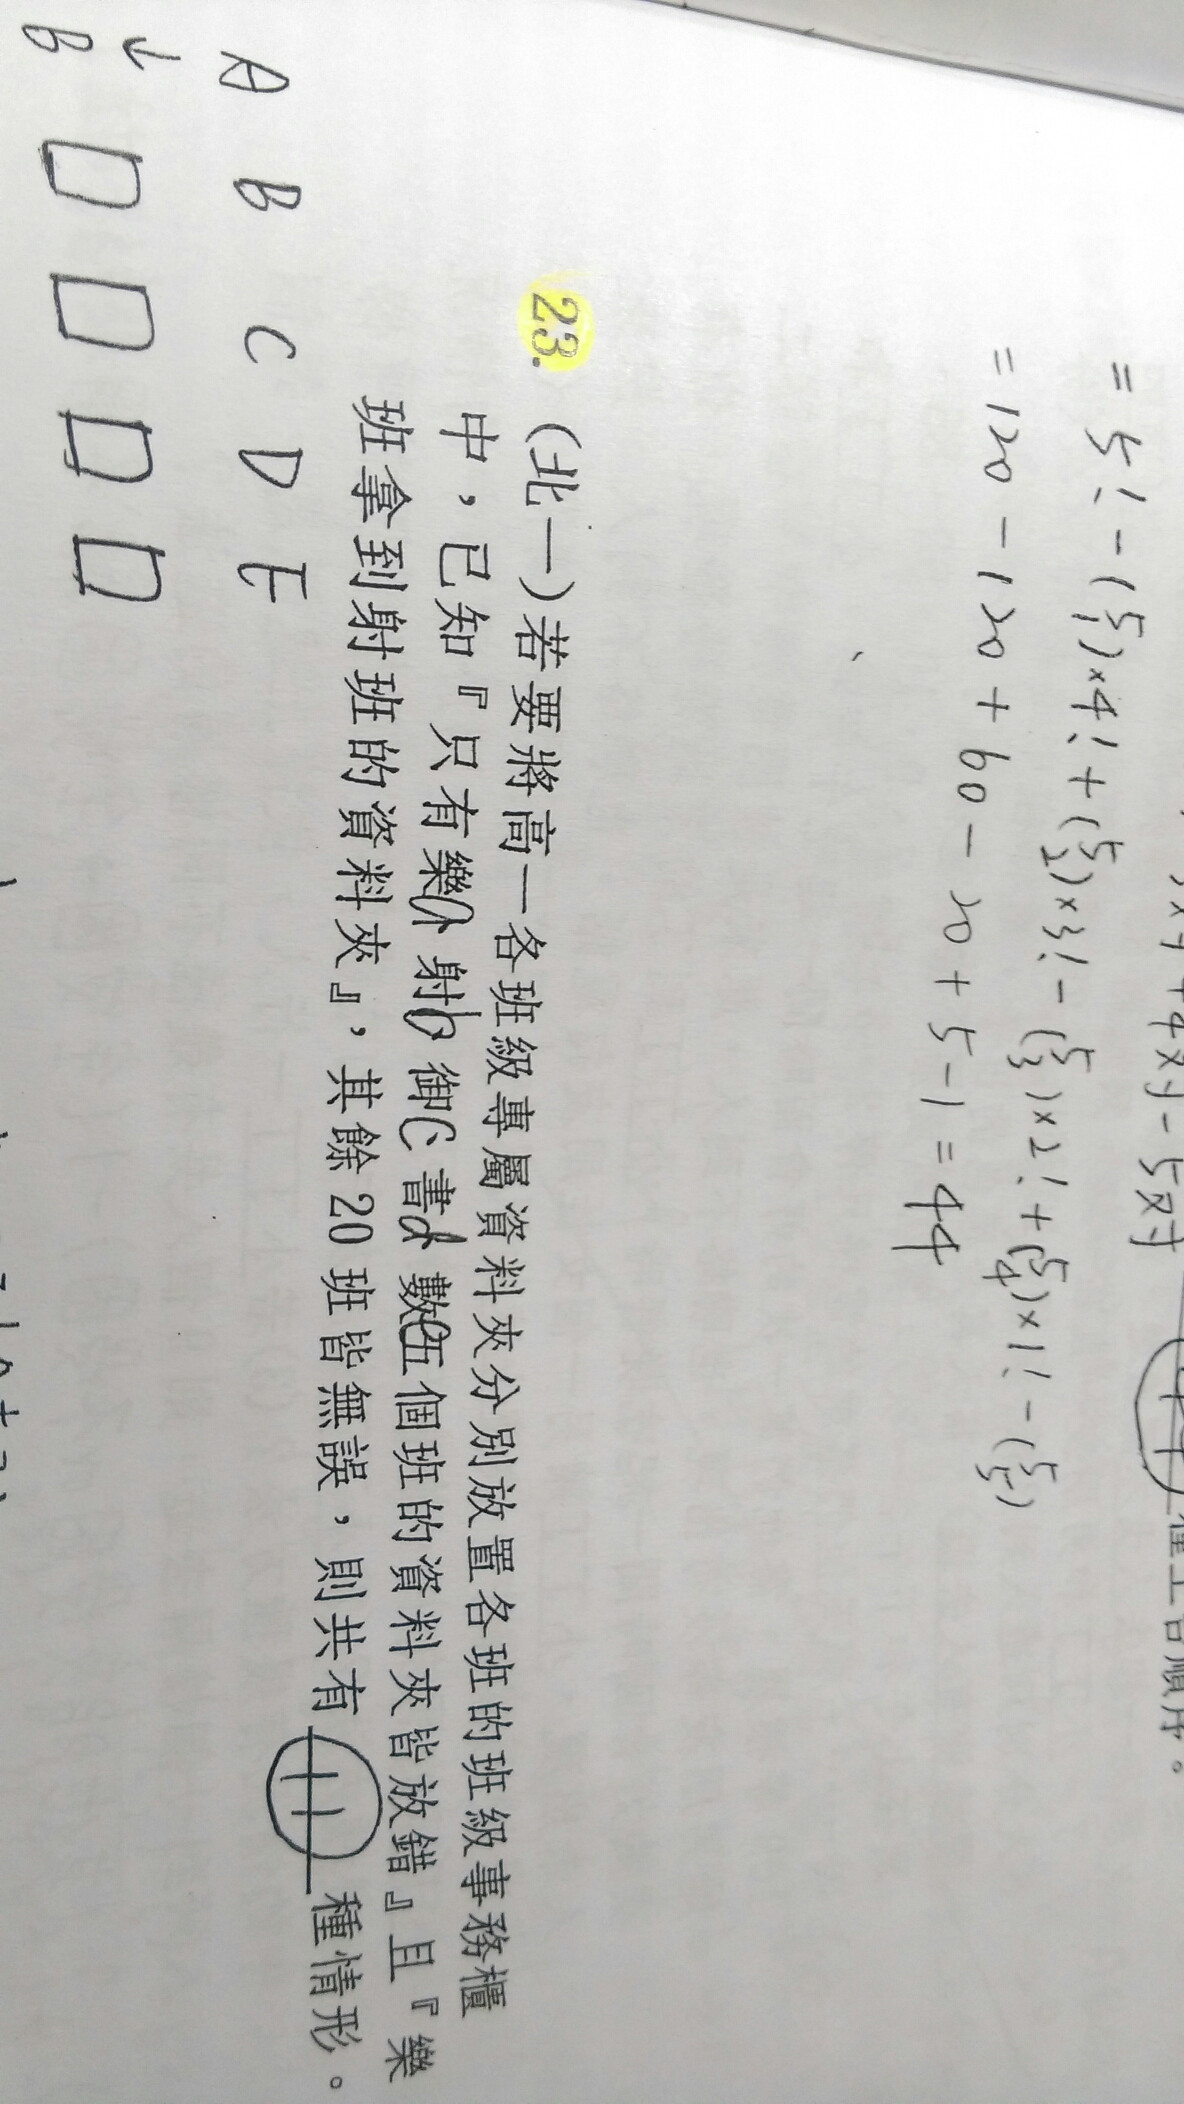 = 5! - (5 1)×4! + (5 2)×3! - (5 3)×2! + (5 4)×1! - (5 5)
= 120 - 120 + 60 - 20 + 5 - 1 = 44
23. (北一)若要將高一各班級專屬資料夾分別放置各班的班級事務櫃
中，已知『只有樂a射b御c書d數e五個班的資料夾皆放錯』且『樂
班拿到射班的資料夾』，其餘20班皆無誤，則共有 11 種情形。
A B C D E
↓
B □ □ □ □